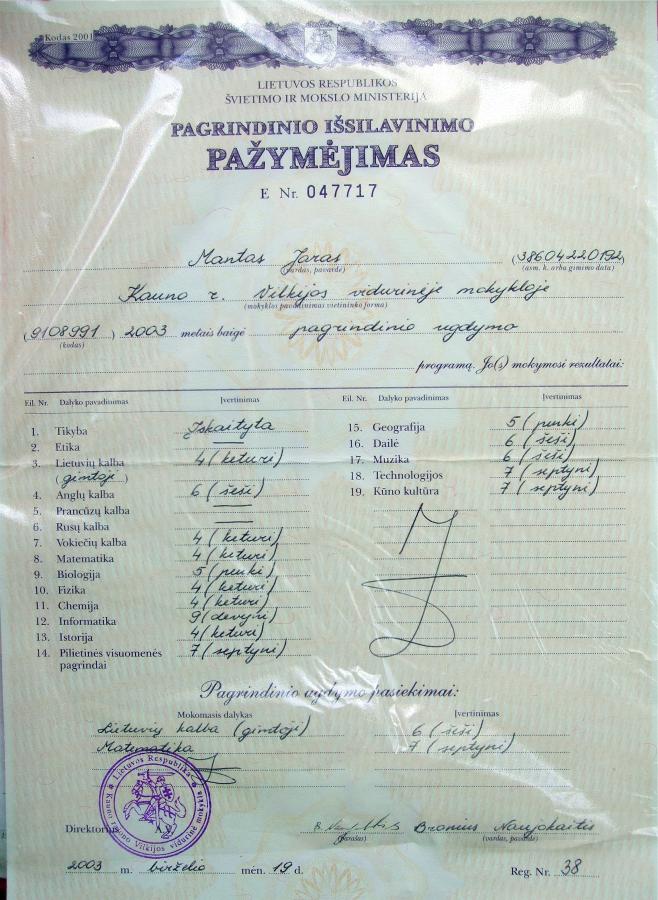 Kodas 2001
LIETUVOS RESPUBLIKOS
ŠVIETIMO IR MOKSLO MINISTERIJA
PAGRINDINIO IŠSILAVINIMO
PAŽYMĖJIMAS
E Nr. 047717
Mantas Jaras (38604220192)
(vardas, pavardė) (asm. k. arba gimimo data)
Kauno r. Vilkijos vidurinėje mokykloje
(mokyklos pavadinimas vietininko forma)
(9108991) 2003 metais baigė pagrindinio ugdymo
(kodas)
programą. Jo(s) mokymosi rezultatai:
Eil. Nr. Dalyko pavadinimas Įvertinimas
1. Tikyba Įskaityta
2. Etika —
3. Lietuvių kalba 4 (keturi)
(gimtoji)
4. Anglų kalba 6 (šeši)
5. Prancūzų kalba —
6. Rusų kalba —
7. Vokiečių kalba 4 (keturi)
8. Matematika 4 (keturi)
9. Biologija 5 (penki)
10. Fizika 4 (keturi)
11. Chemija 4 (keturi)
12. Informatika 9 (devyni)
13. Istorija 4 (keturi)
14. Pilietinės visuomenės 7 (septyni)
pagrindai
Eil. Nr. Dalyko pavadinimas Įvertinimas
15. Geografija 5 (penki)
16. Dailė 6 (šeši)
17. Muzika 6 (šeši)
18. Technologijos 7 (septyni)
19. Kūno kultūra 7 (septyni)
Pagrindinio ugdymo pasiekimai:
Mokomasis dalykas Įvertinimas
Lietuvių kalba (gimtoji) 6 (šeši)
Matematika 7 (septyni)
Lietuvos Respublika
Kauno rajono Vilkijos vidurinė mokykla
Direktorius A.V. Bronius Naujokaitis
(parašas) (vardas, pavardė)
2003 m. birželio mėn. 19 d. Reg. Nr. 38